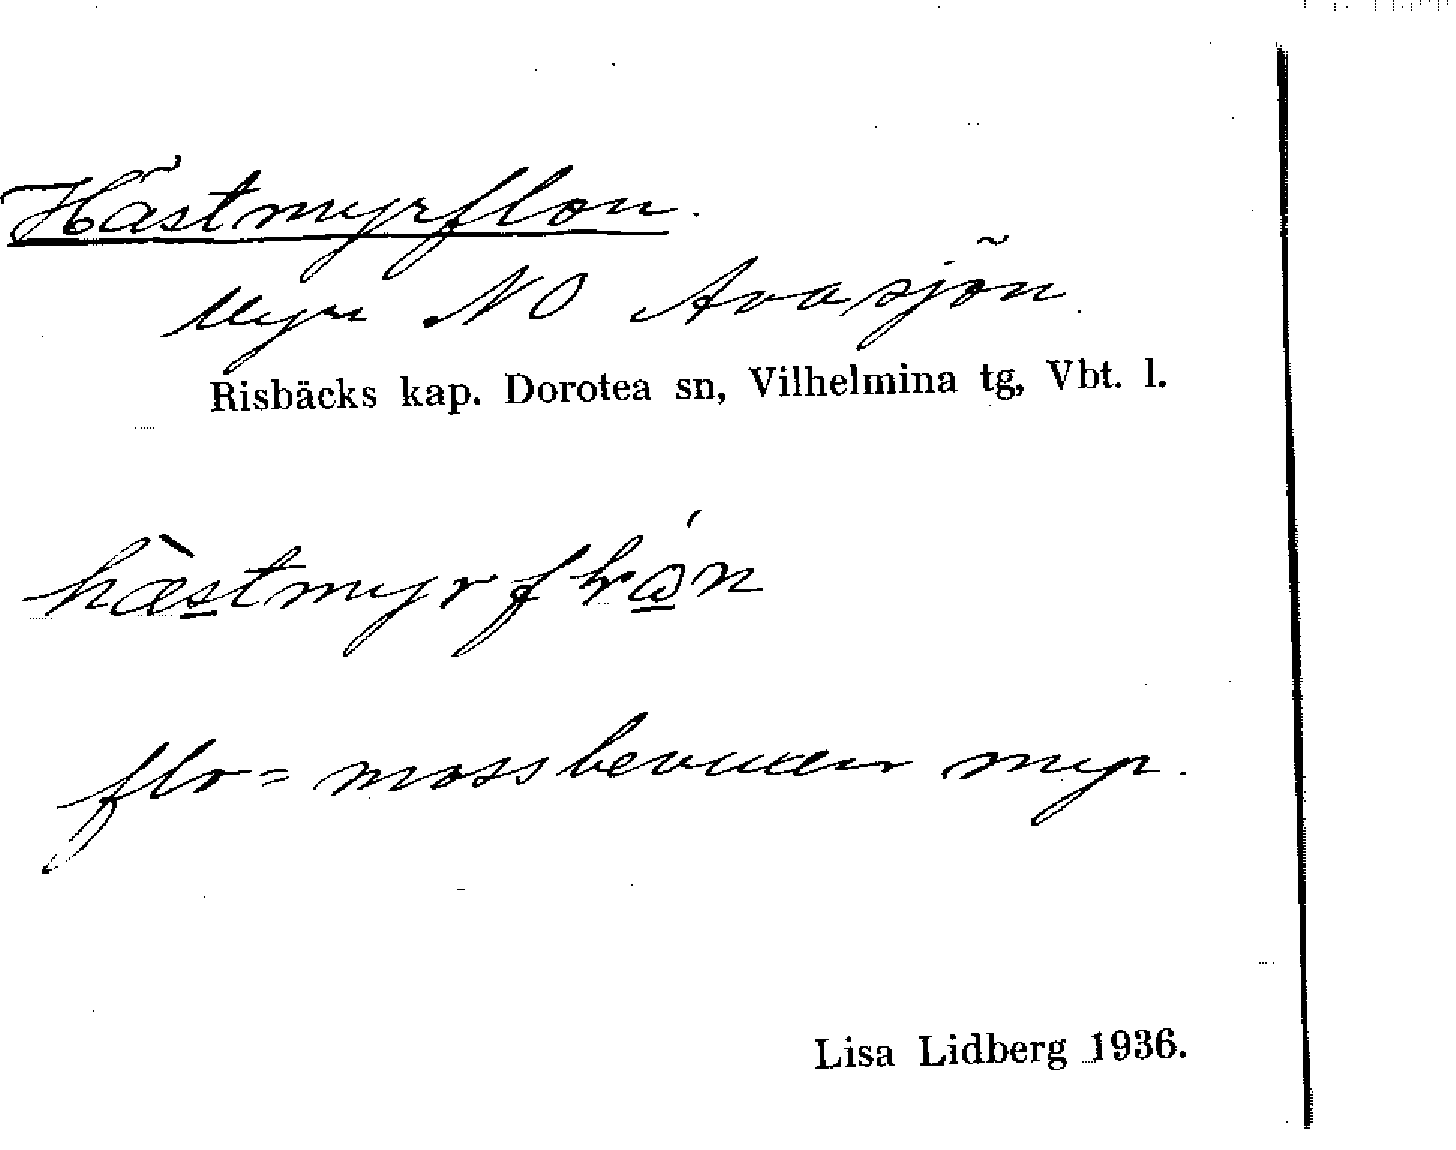 Hästmyrflon.
Myr NO Avasjön.
Risbäcks kap. Dorotea sn, Vilhelmina tg, Vbt. l.
flo = mossbevuxen myr.
Lisa Lidberg 1936.